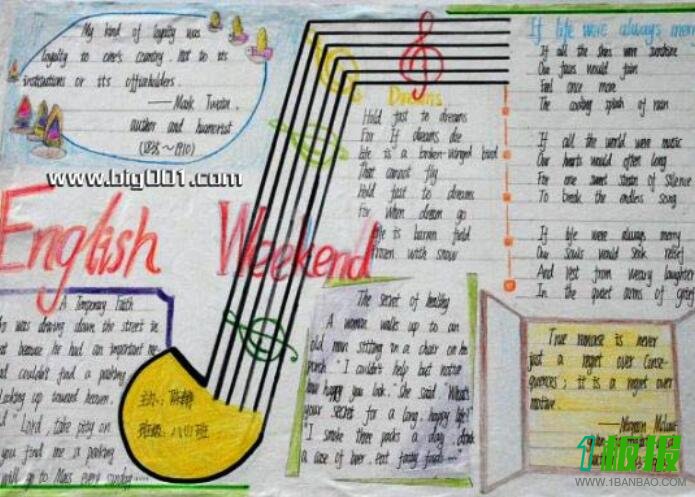 My kind of loyalty was
loyalty to one's country not to its
institutions or its officeholders.
—Mark Twain.
author and humorist
(~1910)
www.big001.com
English Weekend
Dreams
Hold fast to dreams
For If dreams die
life is a broken-winged bird
That cannot fly
Hold fast to dreams
for When dream go
life is barren field
frozen with snow
If life were always merr
If all the skies were sunshine
Our faces would fain
Feel once more
The cooling splash of rain
If all the world were music
Our hearts would often long
For one sweet strain of silence
To break the endless song
If life were always merry
Our souls would seek relief
And rest from weary laughter
In the quiet arms of grief
A Temporary Faith
was driving down the street in
because he had an important me
couldn't find a parking
Looking up toward heaven.
"Lord, take pity on
you find me a parking
will go to Mass every sunday
班级:八(1)班
The secret of healthy
A woman walks up to an
old man sitting in a chair on his
porch. "I couldn't help but notice
how happy you look." She said "What's
your secret for a long happy life?"
"I smoke three packs a day, drink
a case of beer, eat fatty foods
True remorse is never
just a regret over conse-
quences; it is a regret over
motive.
1板报
WWW.1BANBAO.COM